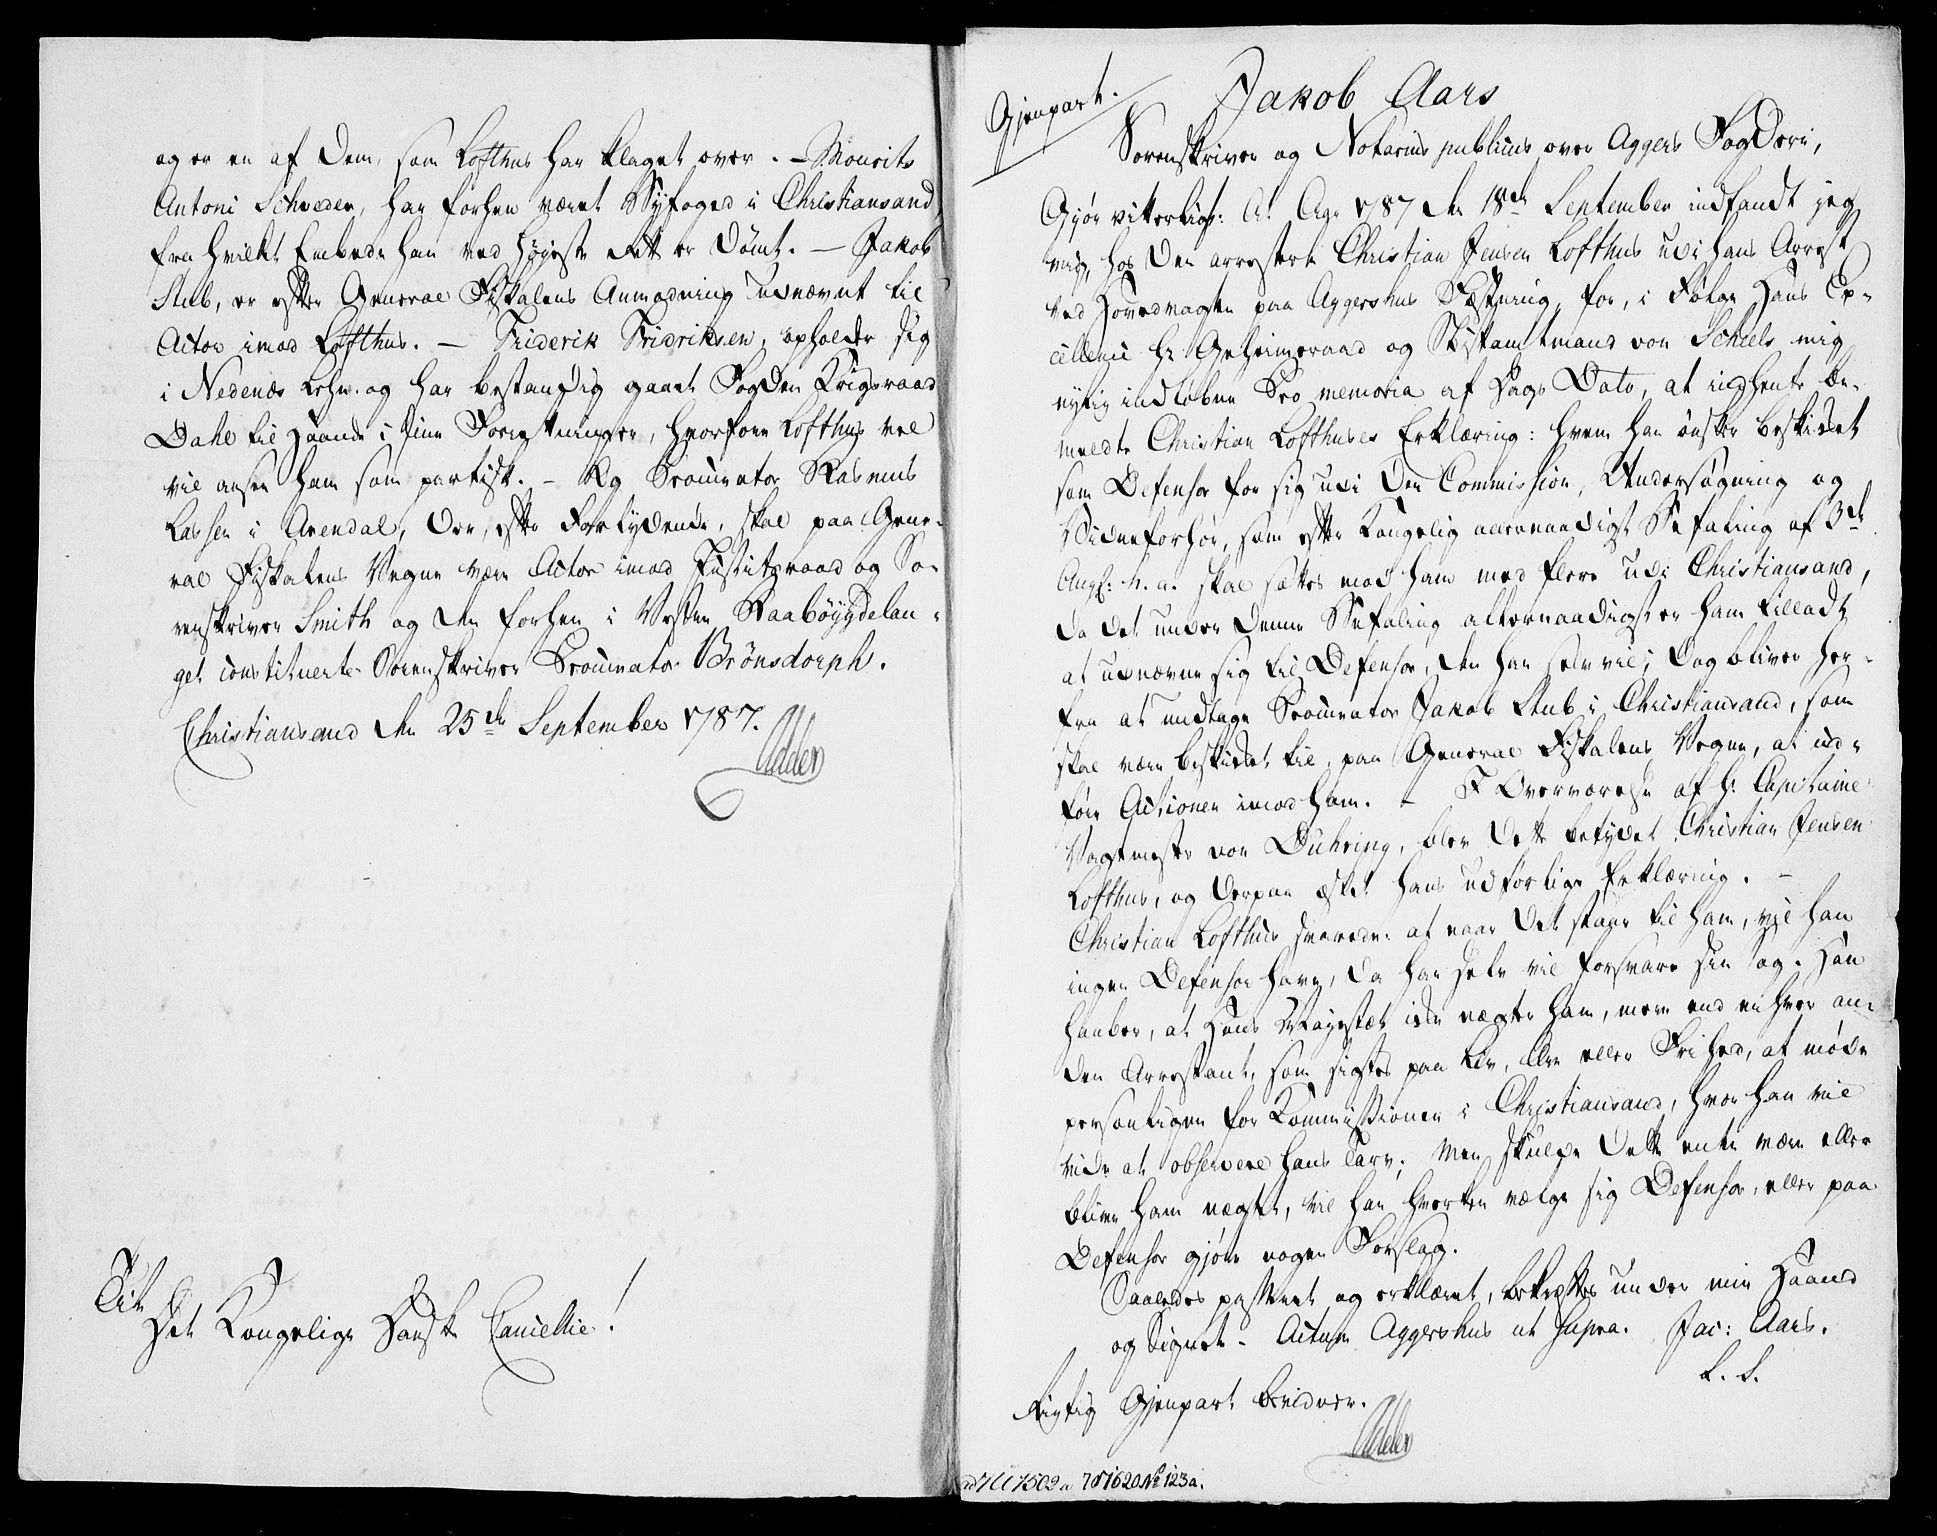 og er en af dem, som Lofthus har klaget over. – Mourits
Antoni Schweder, har forhen været Byfoged i Christiansand
fra hvilket Embede han ved Høyeste Rett er dömt. – Jakob
Stub, er efter General Fiskalens Anmodning udnævnt til
Actor imod Lofthus. – Friderik Fridriksen, opholder sig
i Nedenæs Lehn og har bestandig gaaet Fogden Krigsraad
Dahl til Haande i sine Forretninger, hvorfore Lofthus vel
vil ansee ham som partisk. – Og Procurator Rasmus
Lassen i Arendal, der, efter Forlydende, skal paa Gene-
ral Fiskalens Vegne være Actor imod Justitsraad og So-
renskriver Smith og den forhen i Vester Raabøygdelau-
get constituerte Sorenskriver Procurator Brönsdorph.
Christiansand den 25de September 1787.
Adeler
Til
Det Kongelige Danske Cancellie!
Gjenpart.
Jakob Aars
Sorenskriver og Notarius publicus over Aggers Fogderi,
Gjör vitterligt: At Aar 1787 den 18de September indfandt jeg
mig, hos den arresterte Christian Jensen Lofthus udi hans Arrest
ved Hovedvagten paa Aggershus Fæstning, for, i Følge Hans Ex-
cellence Hr. Geheimeraad og Stiftamtmand von Scheels mig
nylig indløbne Pro memoria af Dags Dato, at indhente be-
meldte Christian Lofthuses Erklæring: hvem han ønsker beskikket
som Defensor for sig udi den Commission, Undersøgning og
Vidneforhør, som efter Kongelig allernaadigst Befaling af 3de
Aug: h. a. skal sættes mod ham med flere udi Christiansand,
da det under denne Befaling allernaadigst er ham tilladt
at udnævne sig til Defensor, den han selv vil; dog bliver her-
fra at undtage Procurator Jakob Stub i Christiansand, som
skal være beskikket til, paa General Fiskalens Vegne, at ud-
føre Actionen imod ham. – I Overværelse af Hr. Capitaine
Vagtmester von Duhring, blev dette betydet Christian Jensen
Lofthus, og derpaa æsket hans udførlige Erklæring. –
Christian Lofthus svarede: at naar det staar til ham, vil han
ingen Defensor have, da han selv vil forsvare sin Sag. Han
haaber, at Hans Majestæt icke nægter ham, mere end en hver an-
den Arrestant, som sigtes paa Liv, Ære eller Frihed, at møde
personligen for Kommissionen i Christiansand, hvor han vil
vide at observere hans Tarv; Men skulde dette ente være eller
blive ham nægtet, vil han hverken vælge sig Defensor, eller paa
Defensor gjøre nogen Forslag.
Saaledes passeret og erklæret, bekræftes under min Haand
og Signet. – Actum Aggershus ut supra. Jac: Aars.
L. S.
Rigtig Gjenpart bevidner.
Adeler